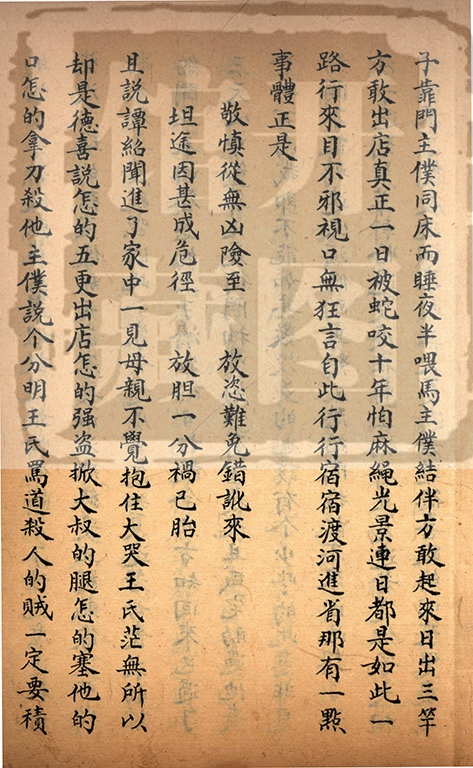 子靠門主僕同床而睡夜半喂馬主僕結伴方敢起來日出三竿
方敢出店真正一日被蛇咬十年怕麻繩光景連日都是如此一
路行來目不邪視口無狂言自此行行宿宿渡河進省那有一點
事體正是
敬慎從無凶險至 放恣難免錯訛來
坦途因甚成危徑 放胆一分禍已胎
且説譚紹聞進了家中一見母親不覺抱住大哭王氏茫無所以
却是德喜説怎的五更出店怎的强盗掀大叔的腿怎的塞他的
口怎的拿刀殺他主僕説个分明王氏罵道殺人的賊一定要積